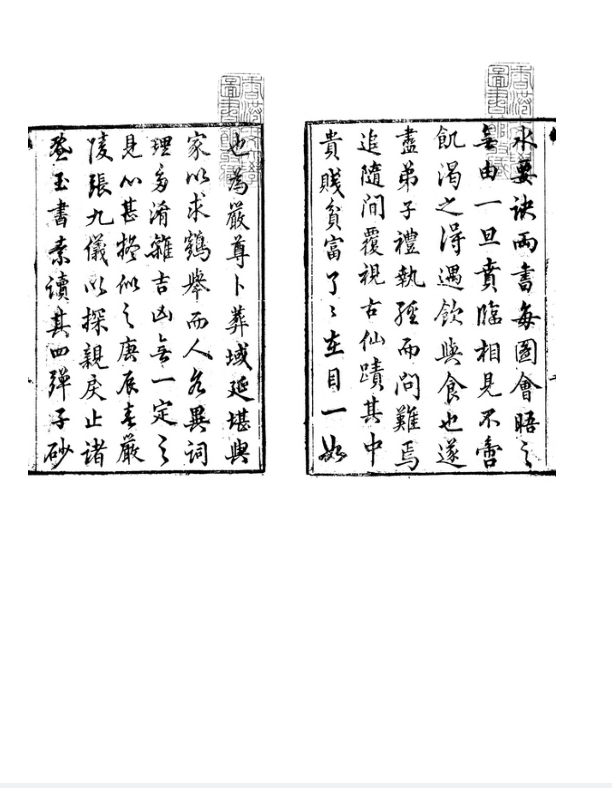 也為嚴尊卜葬域延堪輿
家以求鶴舉而人各異詞
理多淆雜吉凶無一定之
見心甚擬似之庚辰春嚴
陵張九儀以探親戾止諸
登玉書素讀其四彈子砂
水要訣兩書每圖會晤之
無由一旦賁臨相見不啻
飢渴之得遇飲與食也遂
盡弟子禮執經而問難焉
追隨間覆視古仙蹟其中
貴賤貧富了〻在目一如